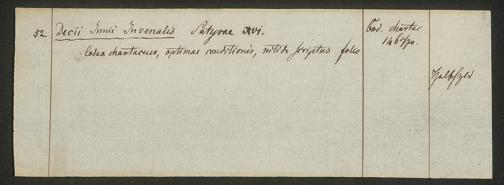 52 Decii Iunii Iuvenalis Satyrae XVI.
Codex chartaceus, optimae conditionis, nitide scriptus folio
Cod. chartac.